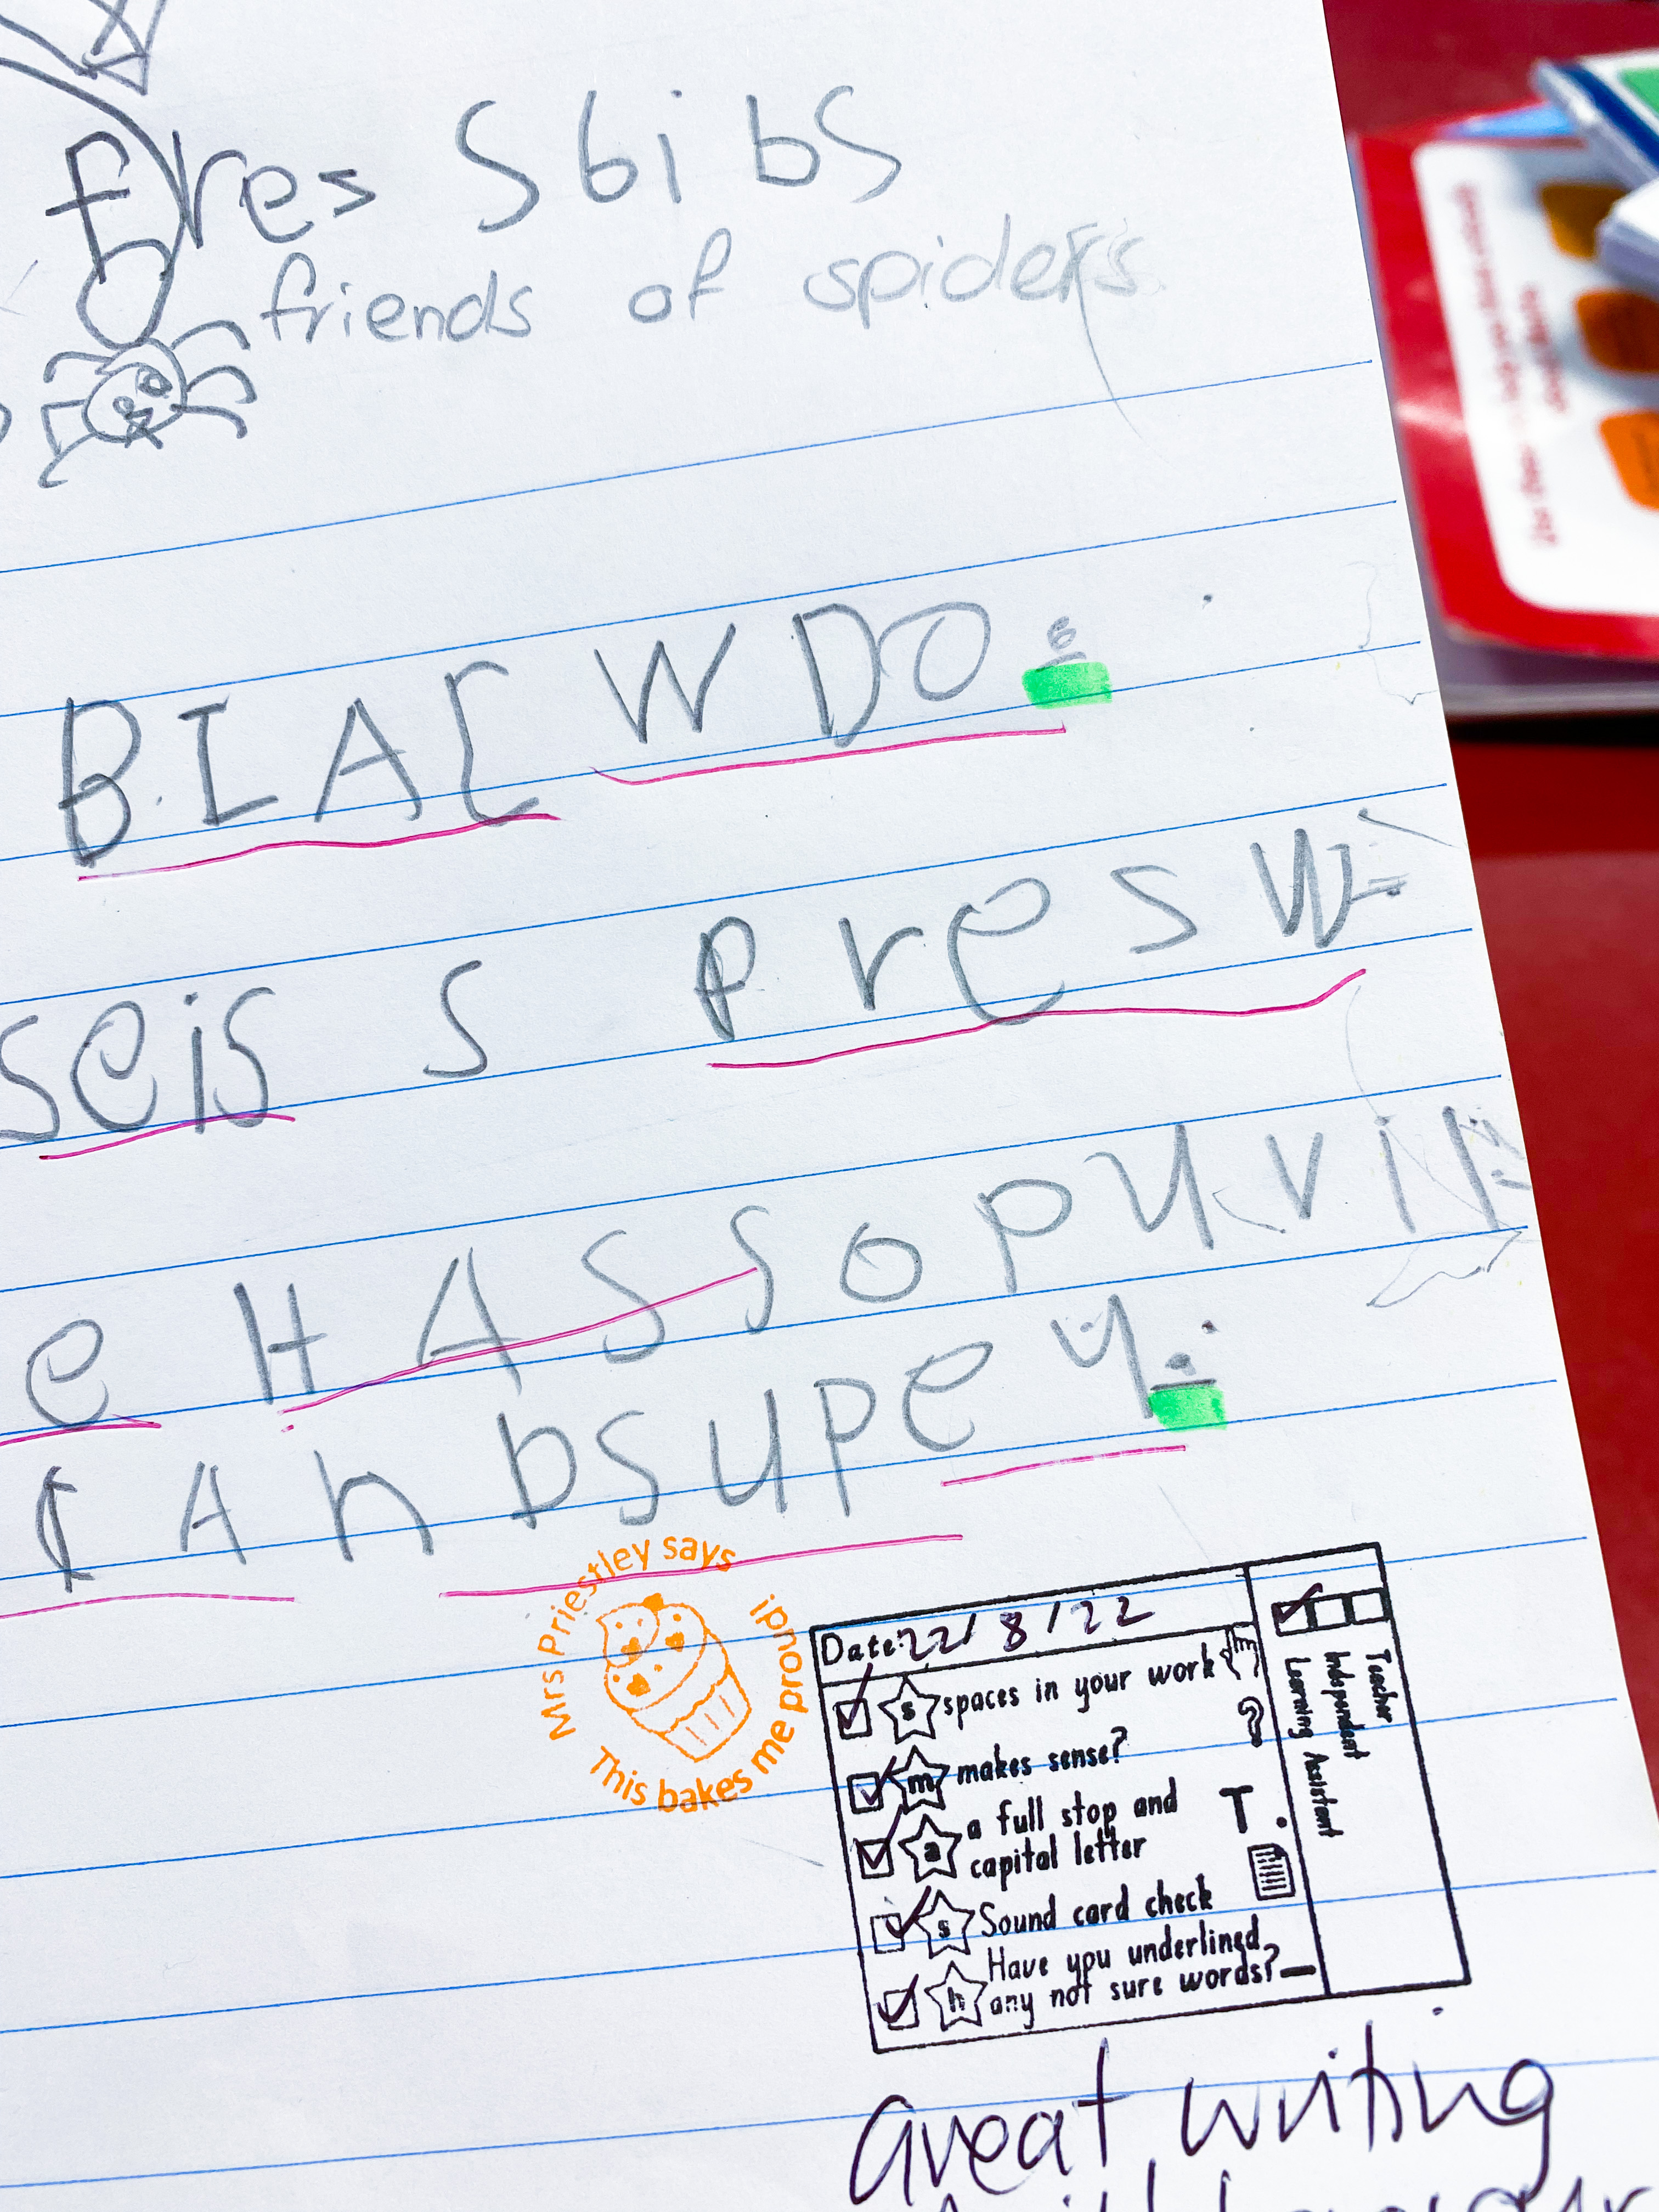 fres Sbi bs
friends of spiders
BIAC W DO.
seis s pres W
e HAS so pu vi
CAn bsupe y.
Mrs Priestley says
This bakes me proud!
Date: 22/8/22
s spaces in your work
m makes sense?
a a full stop and
capital letter
T.
s Sound card check
h Have you underlined
any not sure words?
Teacher
Independent
Learning Assistant
Great writing